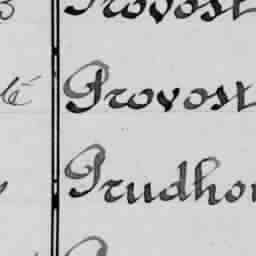 Provost
té Provost
Prudho